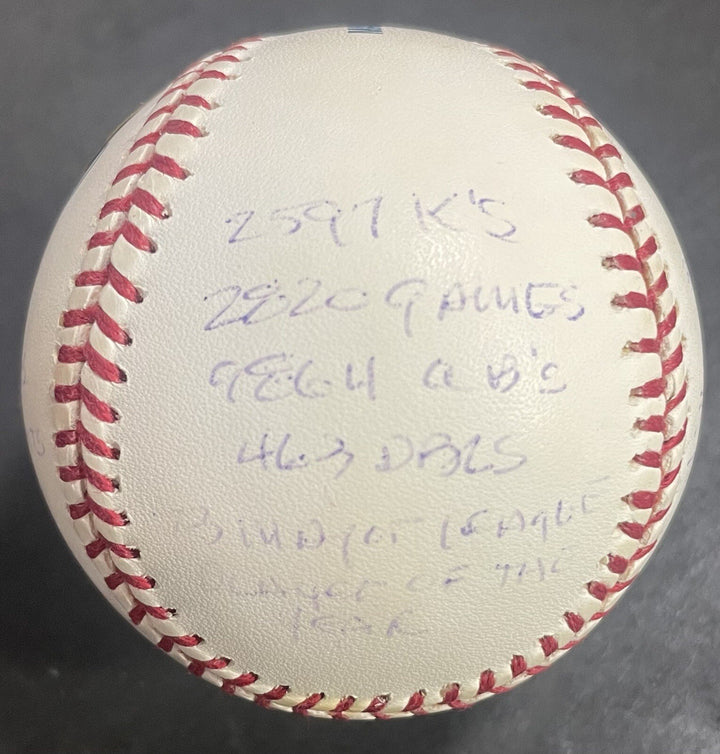 2597 K'S
2820 GAMES
9864 AB'S
463 DBLS
73 MAJOR LEAGUE
PLAYER OF THE
YEAR